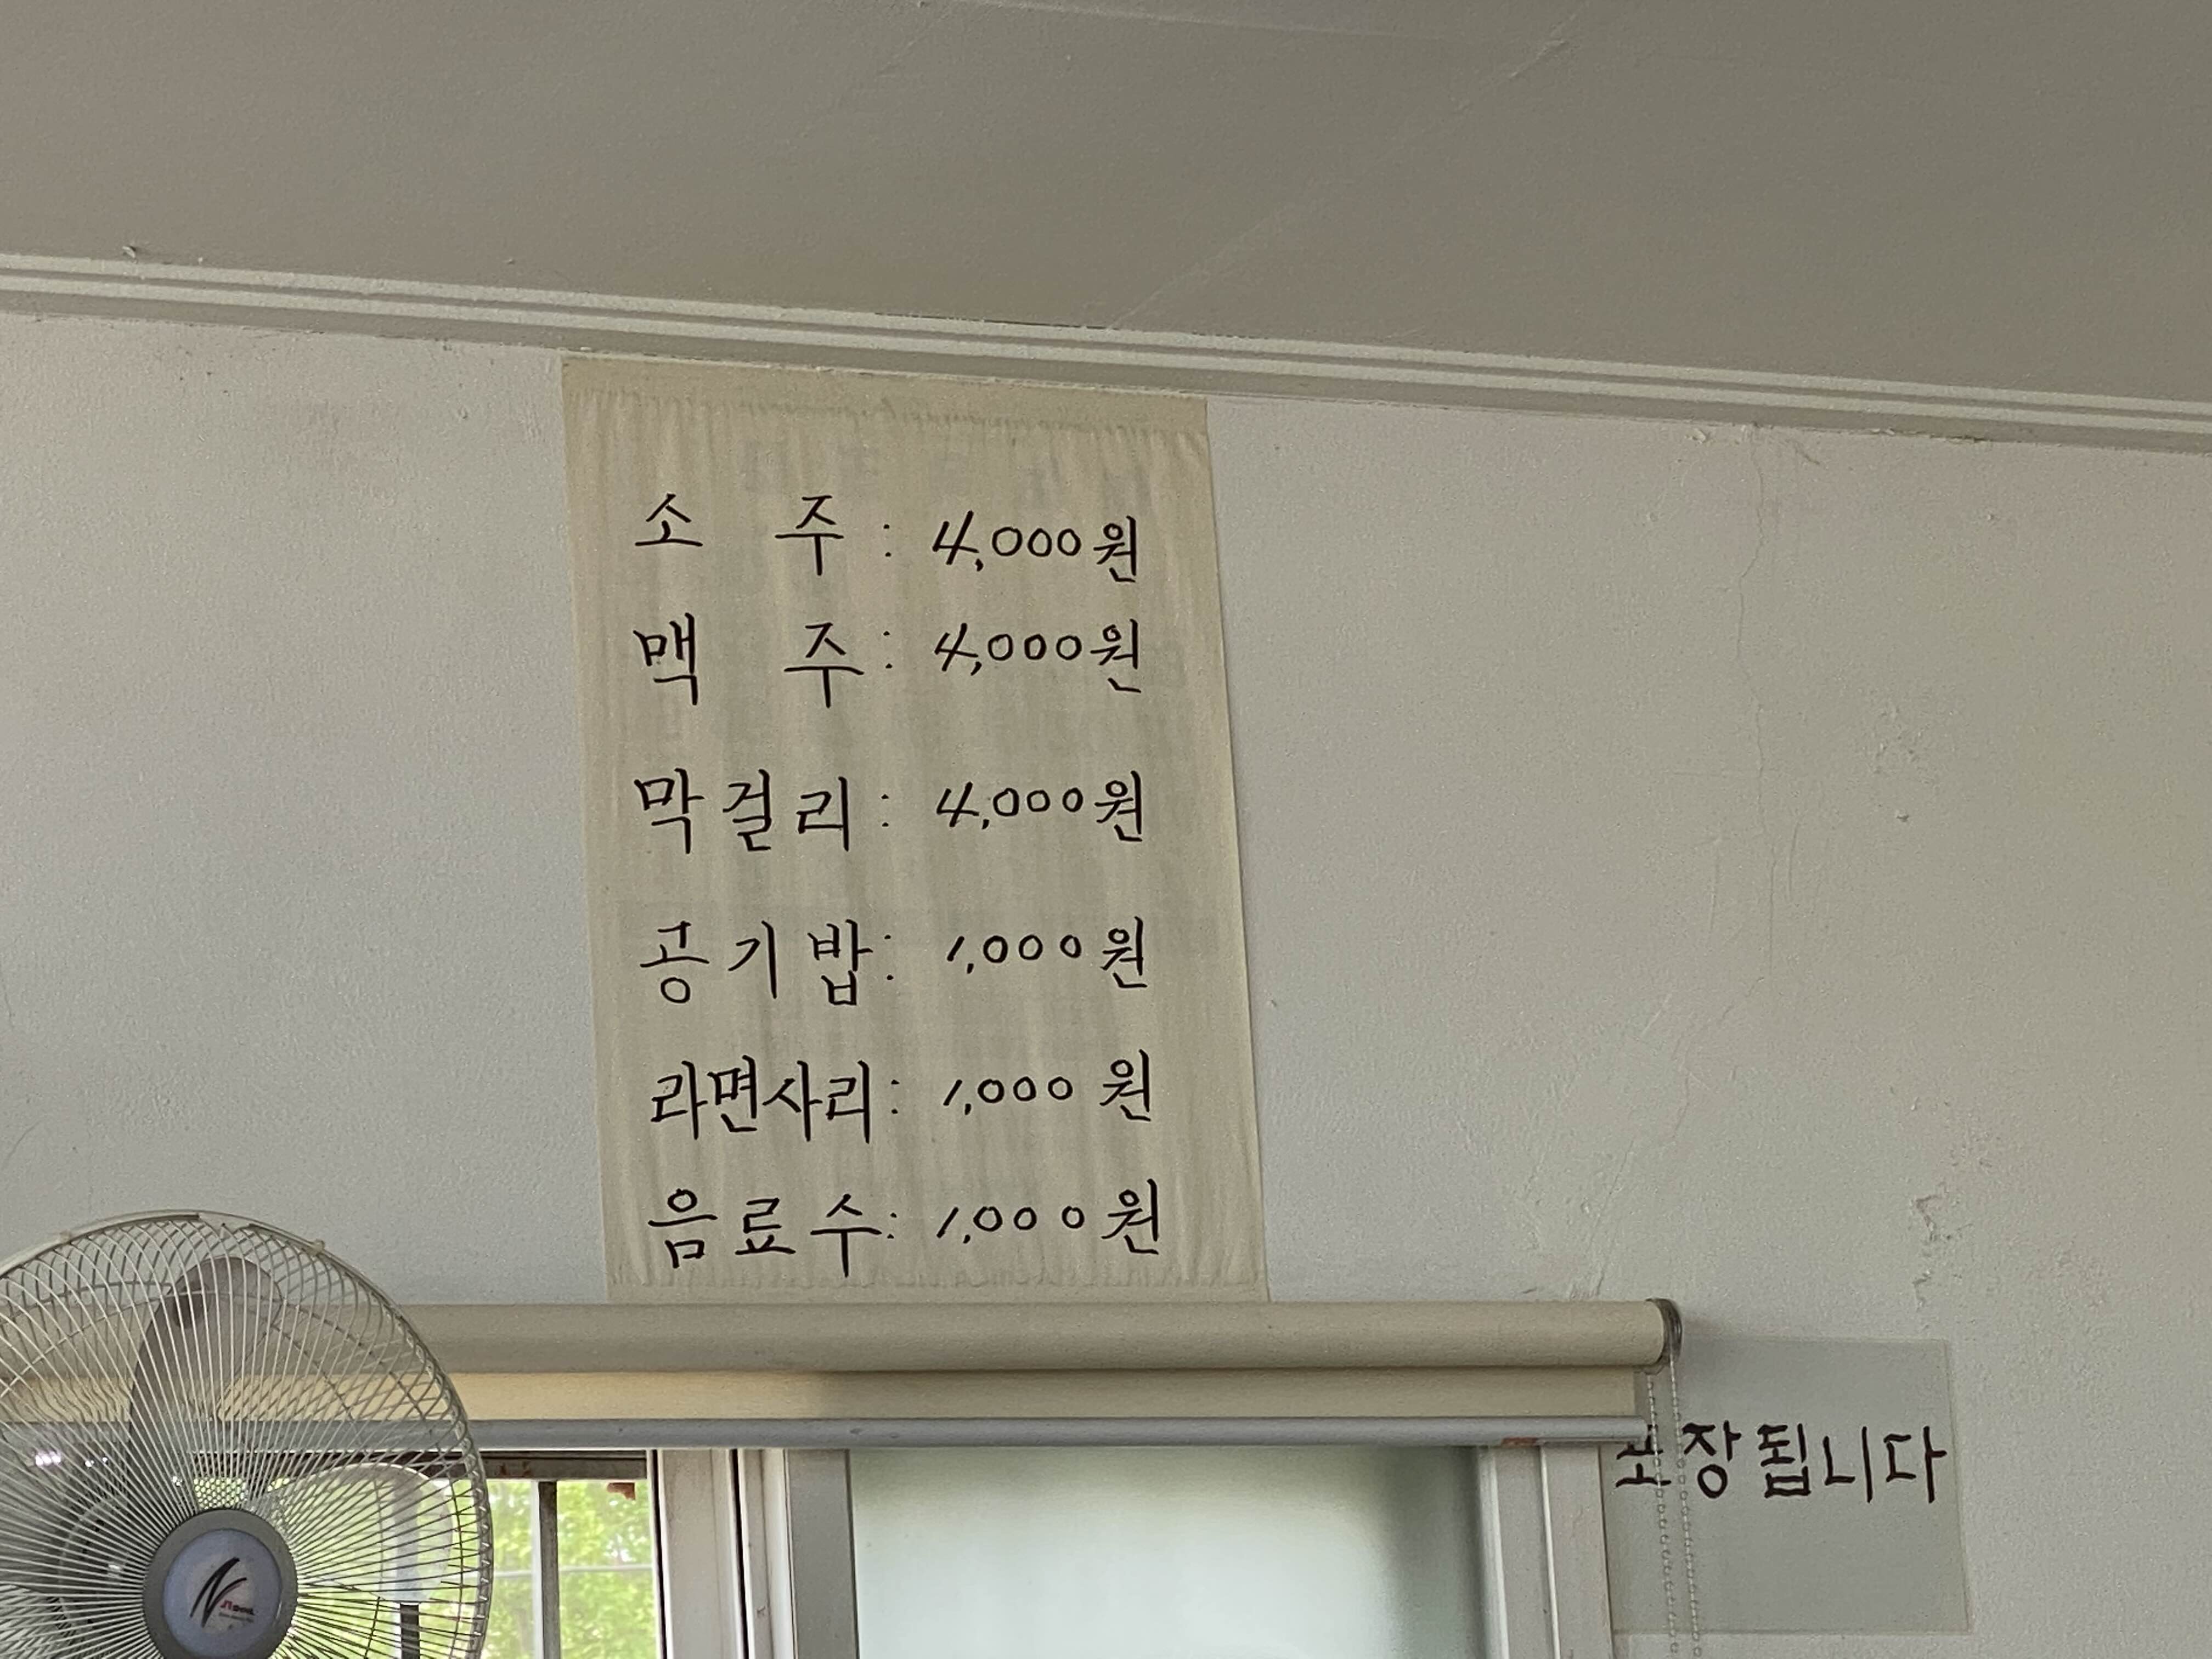 소 주 : 4,000원
맥 주 : 4,000원
막걸리 : 4,000원
공기밥 : 1,000원
라면사리 : 1,000 원
음료수 : 1,000원
포장됩니다